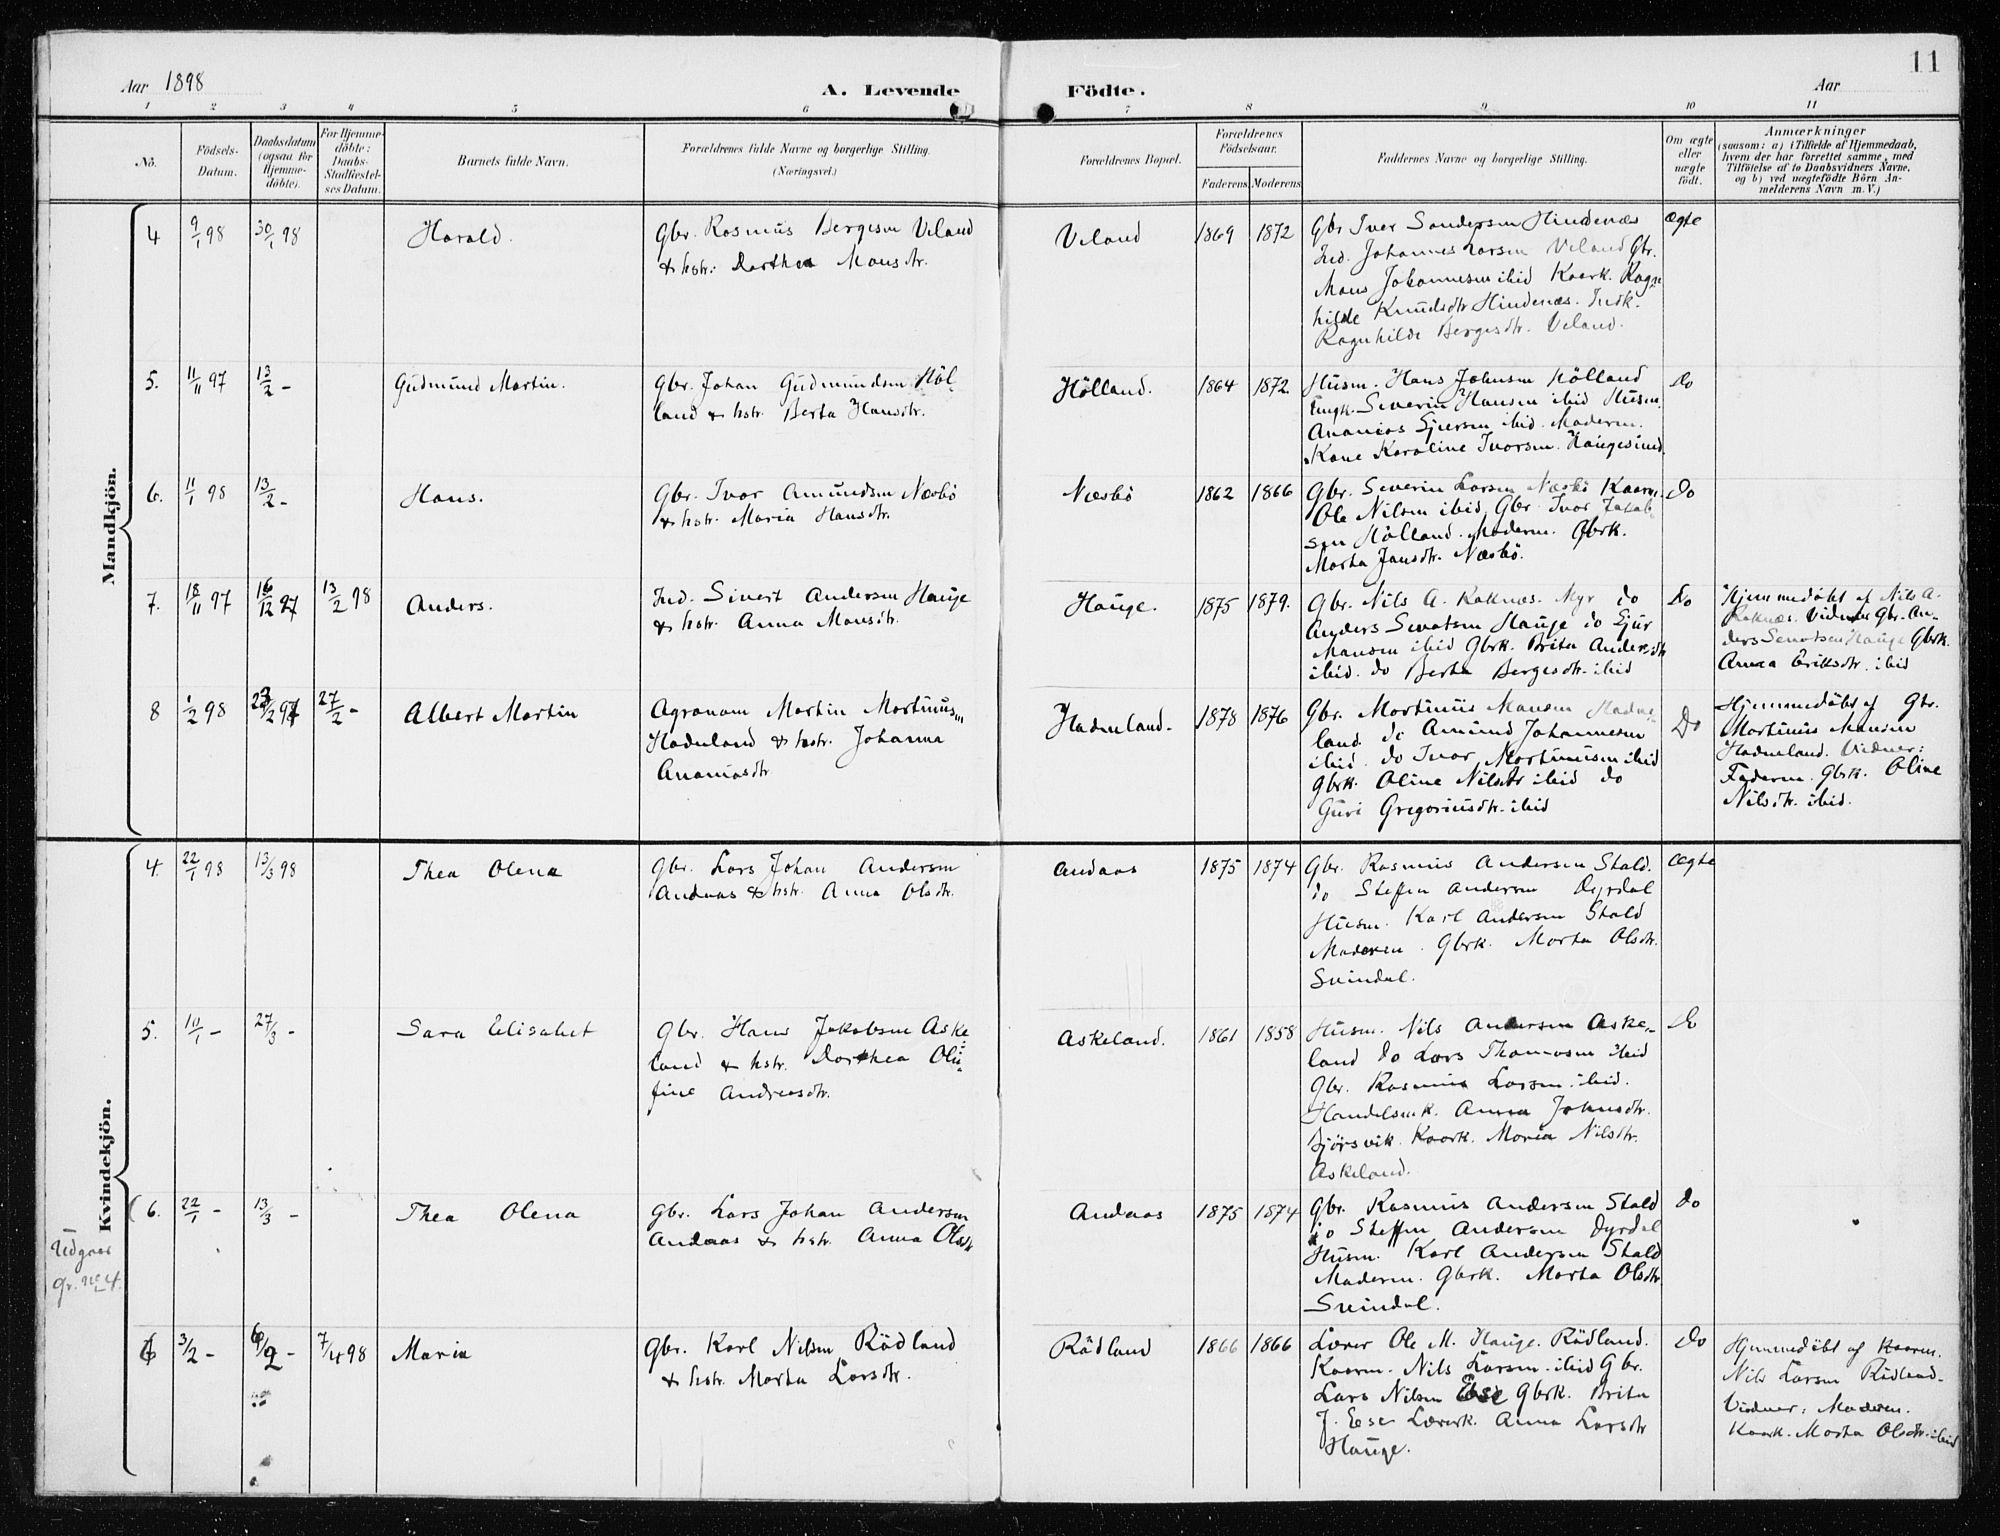 11
Aar 1898
A. Levende
Födte.
Aar
1 2 3 4 5 6 7 8 9 10 11
No.
Födsels-
Datum.
Daabsdatum
(ogsaa for
Hjemme-
döbte).
For Hjemme-
döbte:
Daabs-
Stadfæstel-
ses Datum.
Barnets fulde Navn.
Forældrenes fulde Navne og borgerlige Stilling.
(Næringsvei.)
Forældrenes Bopæl.
Forældrenes
Födselsaar.
Faderens.
Moderens.
Faddernes Navne og borgerlige Stilling.
Om ægte
eller
uægte
födt.
Anmærkninger
(saasom: a) i Tilfælde af Hjemmedaab,
hvem der har forrettet samme, med
Tilföielse af to Daabsvidners Navne,
og b) ved uægtefödte Börn An-
melderens Navn m. V.)
Mandkjön.
4 9/1 98 30/1 98 Harald.
Gbr. Rasmus Bergesen Veland
& hstr. Dorthea Mons dtr.
Veland 1869 1872
Gbr Iver Sandersen Hindenæs
Ind. Johannes Larsen Veland Gbr.
Mons Johannesen ibid Kaark. Ragn-
hilde Knudsdtr Hindenæs. Indk.
Ragnhilde Bergesdtr. Veland.
ægte
5. 11/11 97 13/2 – Gudmund Martin.
Gbr. Johan Gudmundsen Höl-
land & hstr. Berta Hansdtr.
Hölland. 1864 1872.
Husm. Hans Johnsen Hölland
Ungk. Severin Hansen ibid Husm.
Ananias Sjursen ibid. Moderen.
Kone Karoline Ivarsen. Haugesund.
do
6. 11/1 98 13/2 – Hans.
Gbr. Ivar Amundsen Næsbö
& hstr. Maria Hansdtr.
Næsbö 1862 1866
Gbr. Severin Larsen Næsbö Kaarm.
Ole Nilsen ibid Gbr Ivar Jakob-
sen Hölland. Moderen. Gbrk.
Marta Jansdtr. Næsbö.
do
7. 18/11 97 16/12 97 13/2 98 Anders.
Ind. Sivert Andersen Hauge
& hstr. Anna Monsdtr.
Hauge. 1875 1879.
Gbr. Nils A. Roknæs. Myr do
Anders Senatsen Hauge do Sjur
Monsen ibid Gbrk. Brita Andersdtr
ibid. do Berta Bergesdtr. ibid
Do
Hjemmedöbt af Nils A.
Roknæs. Vidner Gbr. An-
ders Senatsen Hauge Gbrk.
Anna Eriksdtr. ibid
8 1/2 98 27/2 – Albert Martin
Agronom Martin Martinus_
Hadneland & hstr. Johanna
Ananiasdtr
Hadneland. 1878 1876
Gbr. Martinus Monsen Hadne-
land. do Amund Johannesen
ibid. do Ivar Martinusen ibid
Gbrk. Oline Nilsdtr ibid do
Guri Gregoriusdtr. ibid
Do
Hjemmedöbt af Gbr.
Martinus Monsen
Hadneland. Vidner:
Faderen. Gbrk. Oline
Nilsdtr. ibid.
Kvindekjön.
4. 22/1 98 13/3 98 Thea Olena
Gbr. Lars Johan Andersen
Andaas & hstr. Anna Olsdtr.
Andaas 1875 1874
Gbr. Rasmus Andersen Stald.
do Steffen Andersen Dyrdal
Husm. Karl Andersen Stald
Moderen. Gbrk. Marta Olsdtr.
Sveindal.
Ægte
5. 10/1 – 27/3 – Sara Elisabet
Gbr. Hans Jakobsen Aske-
land & hstr. Dorthea Olu-
fine Andreasdtr.
Askeland. 1861 1858
Husm. Nils Andersen Aske-
land do Lars Thomasen ibid
Gbr. Rasmus Larsen. ibid.
Handelsmk. Anna Johnsdtr.
Eikefjörsvik. Kaark. Maria Nilsdtr.
Askeland.
do
(6. 22/1 – 13/3 – Thea Olena
Gbr. Lars Johan Andersen
Andaas & hstr. Anna Olsdtr
Andaas 1875 1874
Gbr. Rasmus Andersen Stald
do Steffen Andersen Dyrdal
Husm. Karl Andersen Stald
Moderen. Gbrk. Marta Olsdtr
Sveindal.
do
Udgaar
gr. No 4.
6 3/2 – 6/2 – 7/4 98 Maria
Gbr. Karl Nilsen Rödland
& hstr. Marta Larsdtr.
Rödland 1866 1866
Lærer Ole M. Hauge. Rödland.
Kaarm. Nils Larsen. ibid Gbr.
Lars Nilsen Eese Gbrk. Brita
J. Eese Lærerk. Anna Larsdtr
Hauge.
do
Hjemmedöbt af Kaarm.
Nils Larsen Rödland.
Vidner: Moderen.
Kaark. Marta Olsdtr. ibid